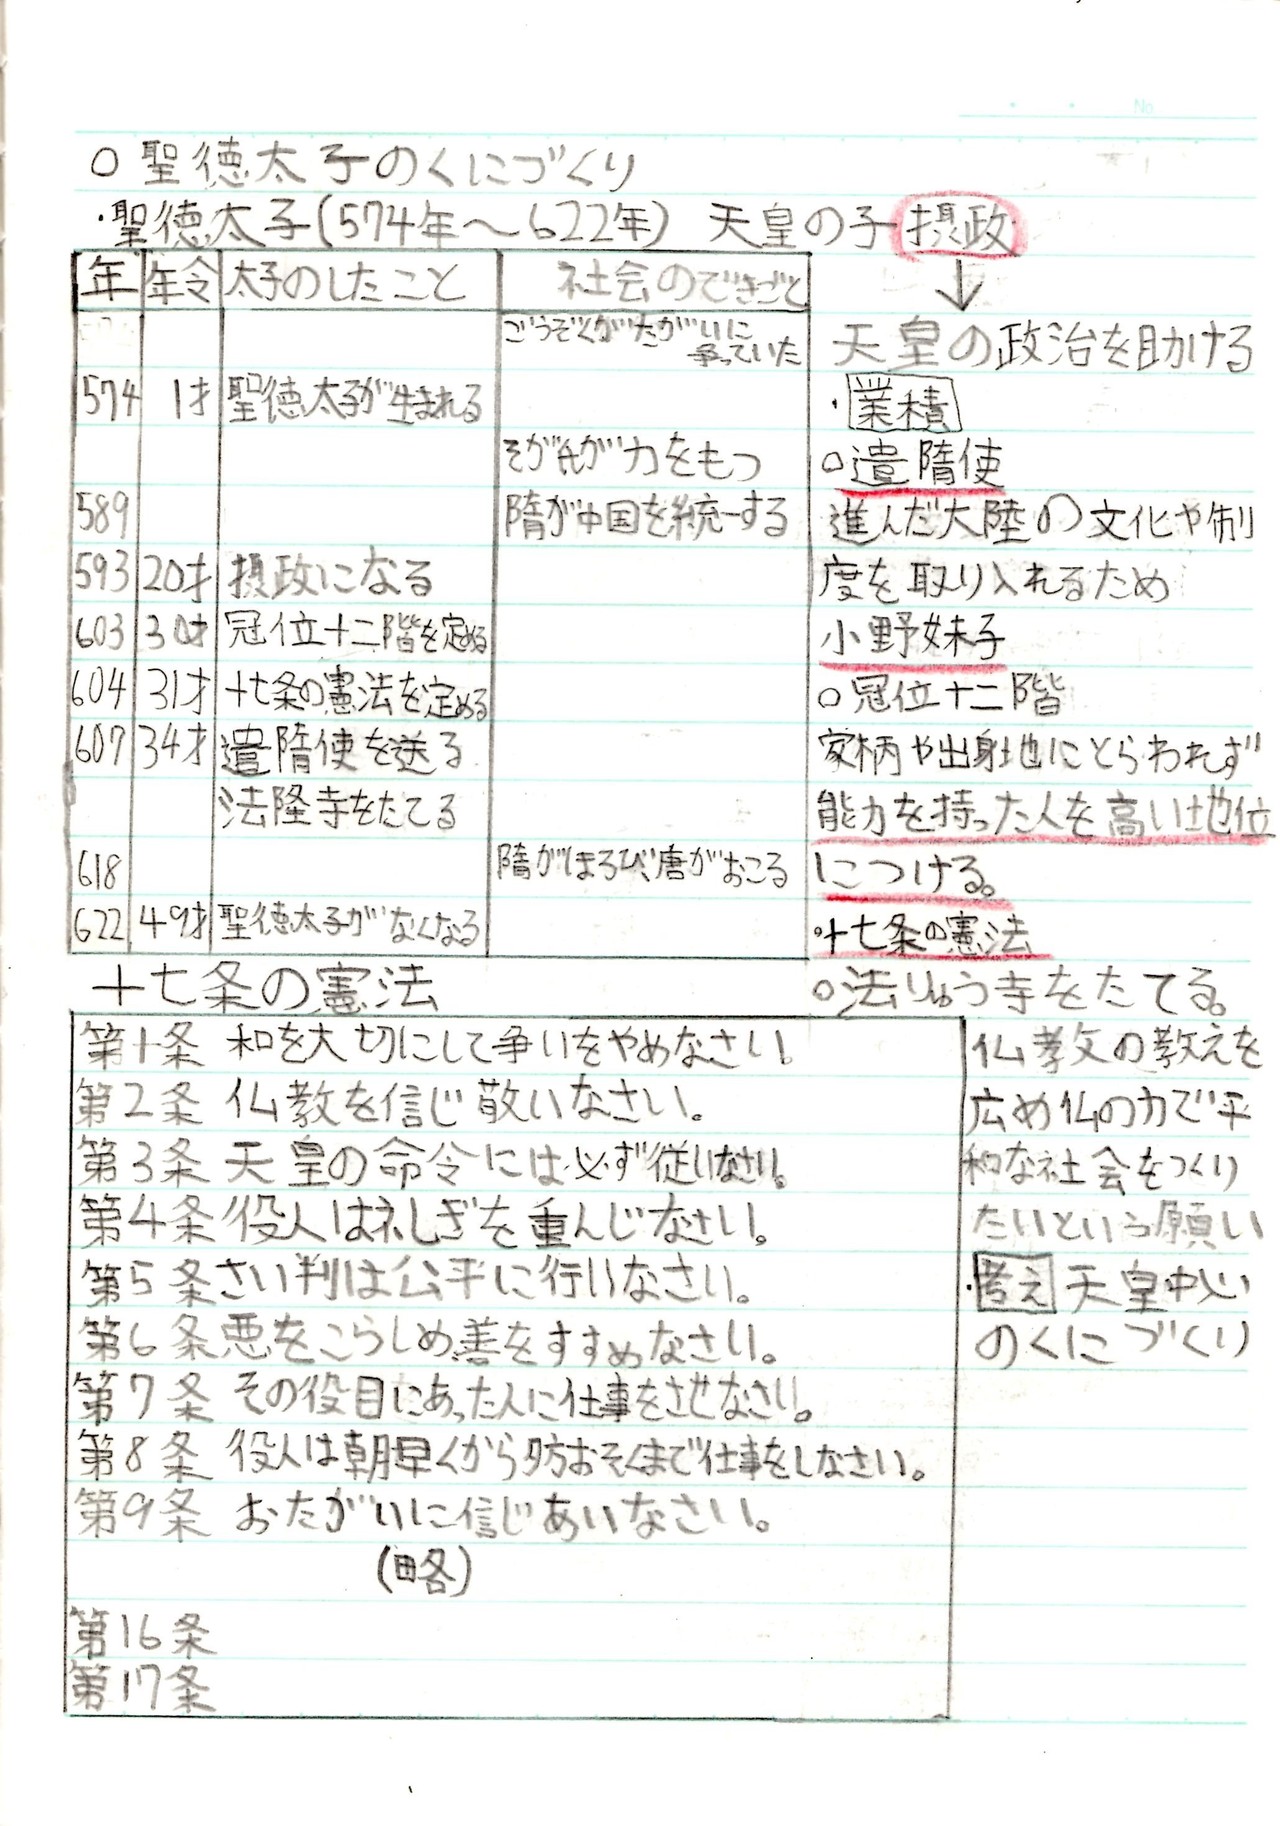 No.
○聖徳太子のくにづくり
・聖徳太子(574年～622年) 天皇の子 摂政
↓
天皇の政治を助ける
年 年令 太子のしたこと 社会のできごと
ごうぞくがたがいに
争っていた
574 1才 聖徳太子が生まれる
そが氏が力をもつ
589 隋が中国を統一する
593 20才 摂政になる
603 30才 冠位十二階を定める
604 31才 十七条の憲法を定める
607 34才 遣隋使を送る
法隆寺をたてる
618 隋がほろび、唐がおこる
622 49才 聖徳太子がなくなる
・業積
○遣隋使
進んだ大陸の文化や制
度を取り入れるため
小野妹子
○冠位十二階
家柄や出身地にとらわれず
能力を持った人を高い地位
につける。
○十七条の憲法
○法りゅう寺をたてる。
仏孝攵の教えを
広め仏の力で平
和な社会をつくり
たいという願い
・考え 天皇中心
のくにづくり
十七条の憲法
第1条 和を大切にして争いをやめなさい。
第2条 仏教を信じ敬いなさい。
第3条 天皇の命令には必ず従いなさい。
第4条 役人は礼しぎを重んじなさい。
第5条 さい判は公平に行いなさい。
第6条 悪をこらしめ善をすすめなさい。
第7条 その役目にあった人に仕事をさせなさい。
第8条 役人は朝早くから夕方おそくまで仕事をしなさい。
第9条 おたがいに信じあいなさい。
(略)
第16条
第17条